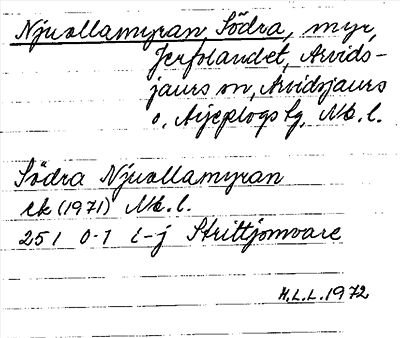 Njuollamyran, Södra, myr,
Jerfolandet, Arvids-
jaurs sn, Arvidsjaurs
o. Arjeplogs lg, Nb. l.
Södra Njuollamyran
ek (1971) Nb. l.
25 I 0-1 i-j Strittjomvare
H.L.L. 1972